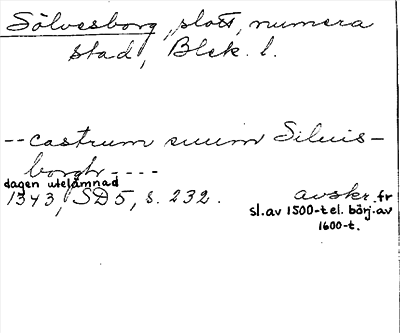 Sölvesborg, slott, numera
stad, Blek. l.
-- castrum suum Siluis-
borgh ----
dagen utelämnad
1343, SD5, s. 232. avskr. fr
sl. av 1500-t el. börj. av
1600-t.